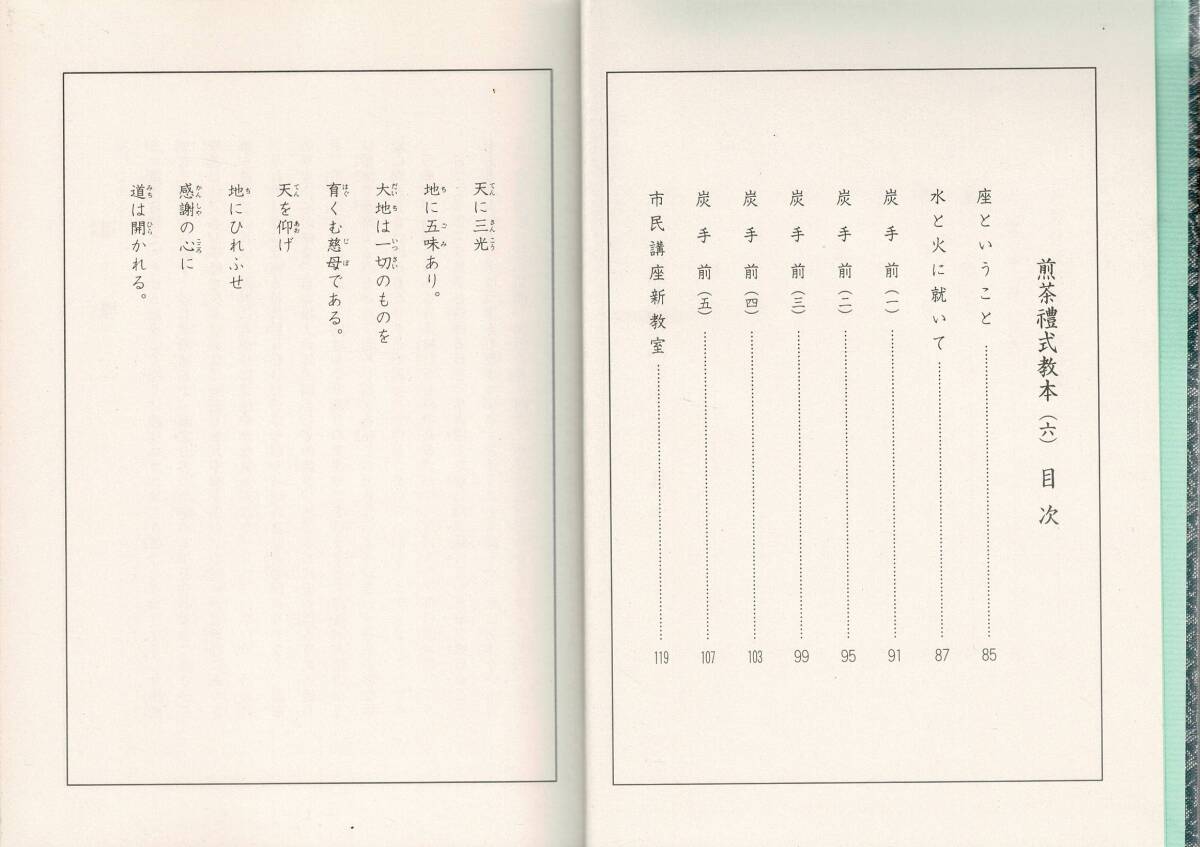 煎茶禮式教本（六） 目次
座ということ……………85
水と火に就いて……………87
炭手前（一）……………91
炭手前（二）……………95
炭手前（三）……………99
炭手前（四）……………103
炭手前（五）……………107
市民講座新教室……………119
天に三光
地に五味あり。
大地は一切のものを
育くむ慈母である。
天を仰げ
地にひれふせ
感謝の心に
道は開かれる。